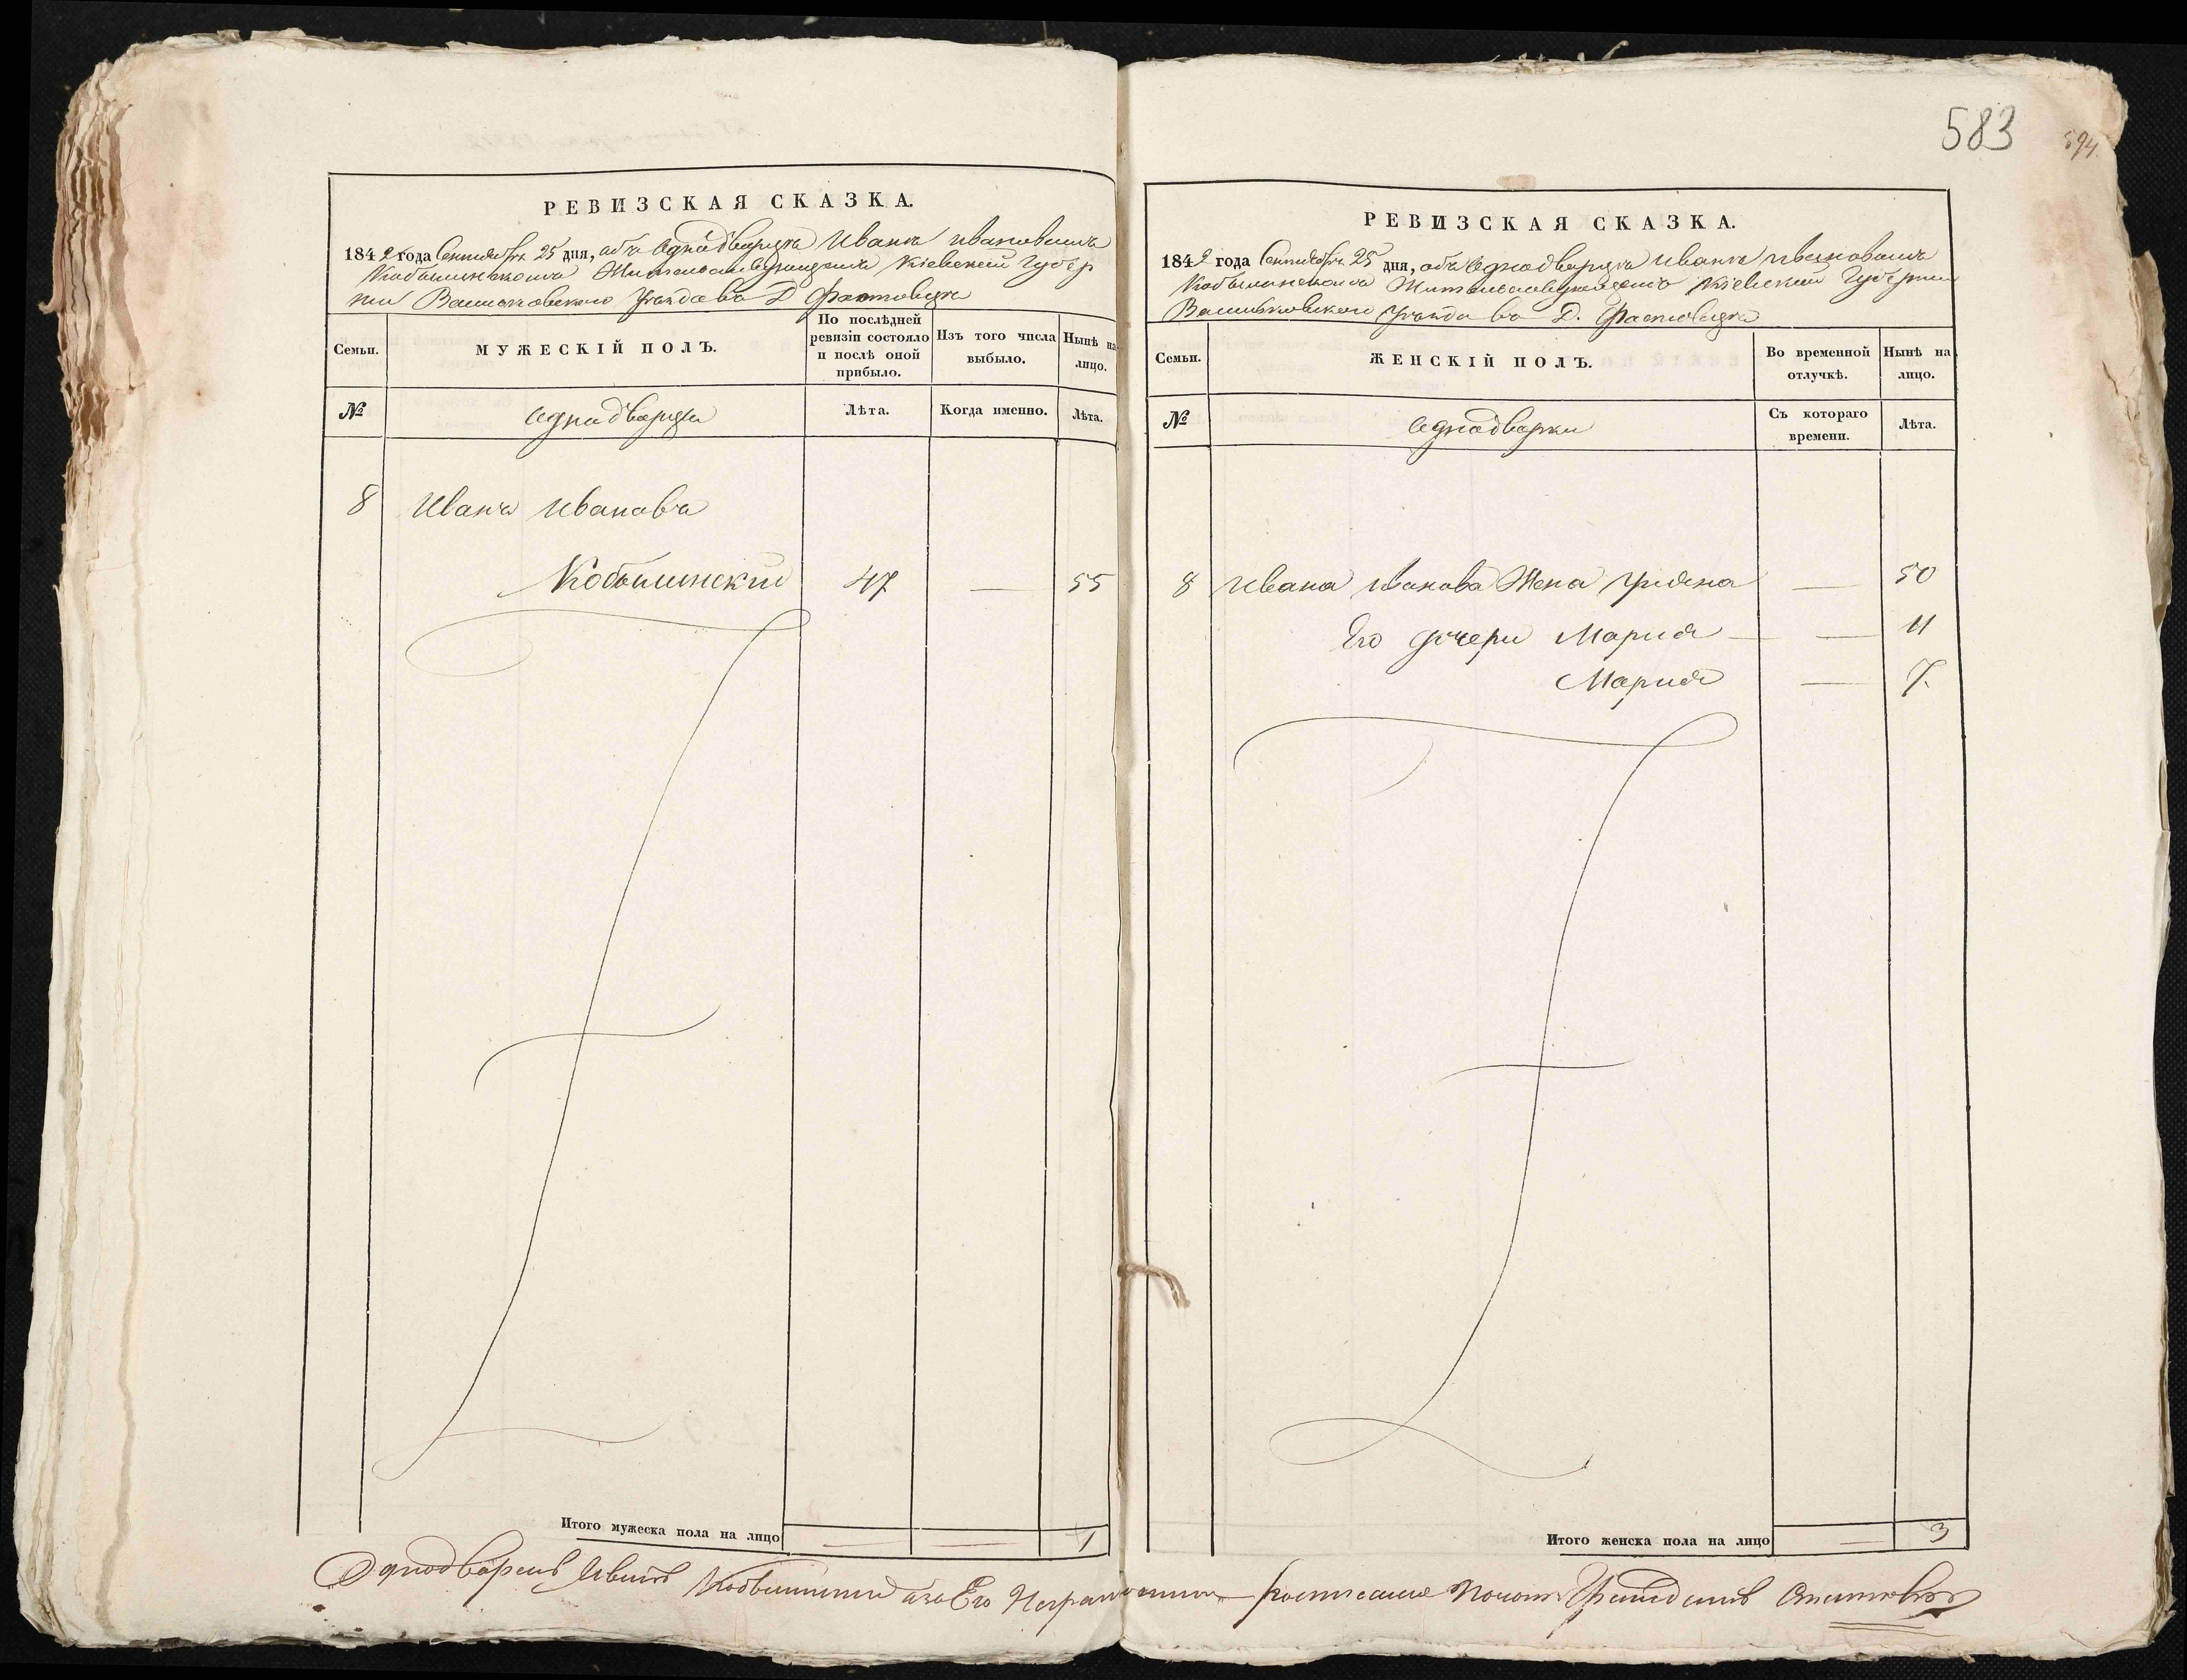 583
594
РЕВИЗСКАЯ СКАЗКА.
1842 года Сентября 25 дня, объ однодворцѣ Иванѣ Ивановомъ
Кобылинскомъ Жительствующемъ Кіевской Губер
ніи Васильковскаго уѣзда въ Д Фастовцѣ
Семьи.
МУЖЕСКІЙ ПОЛЪ.
По послѣдней ревизіи состояло и послѣ оной прибыло.
Изъ того числа выбыло.
Нынѣ на лицо.
№
однодворцы
Лѣта.
Когда именно.
Лѣта.
8 Иванъ Ивановъ
Кобылинскій 47 — 55
Итого мужеска пола на лицо — — 1
РЕВИЗСКАЯ СКАЗКА.
1842 года Сентября 25 дня, объ однодворцѣ Иванѣ Ивановомъ
Кобылинскомъ Жительствующемъ Кіевской Губерніи
Васильковскаго уѣзда въ Д. Фастовцѣ
Семьи.
ЖЕНСКІЙ ПОЛЪ.
Во временной отлучкѣ.
Нынѣ на лицо.
№
однодворки
Съ котораго времени.
Лѣта.
8 Ивана Иванова Жена — 50
Его дочери Марія — — 11
Марія — 7.
Итого женска пола на лицо — 3
Однодворецъ Иванъ Кобылинский а за Его